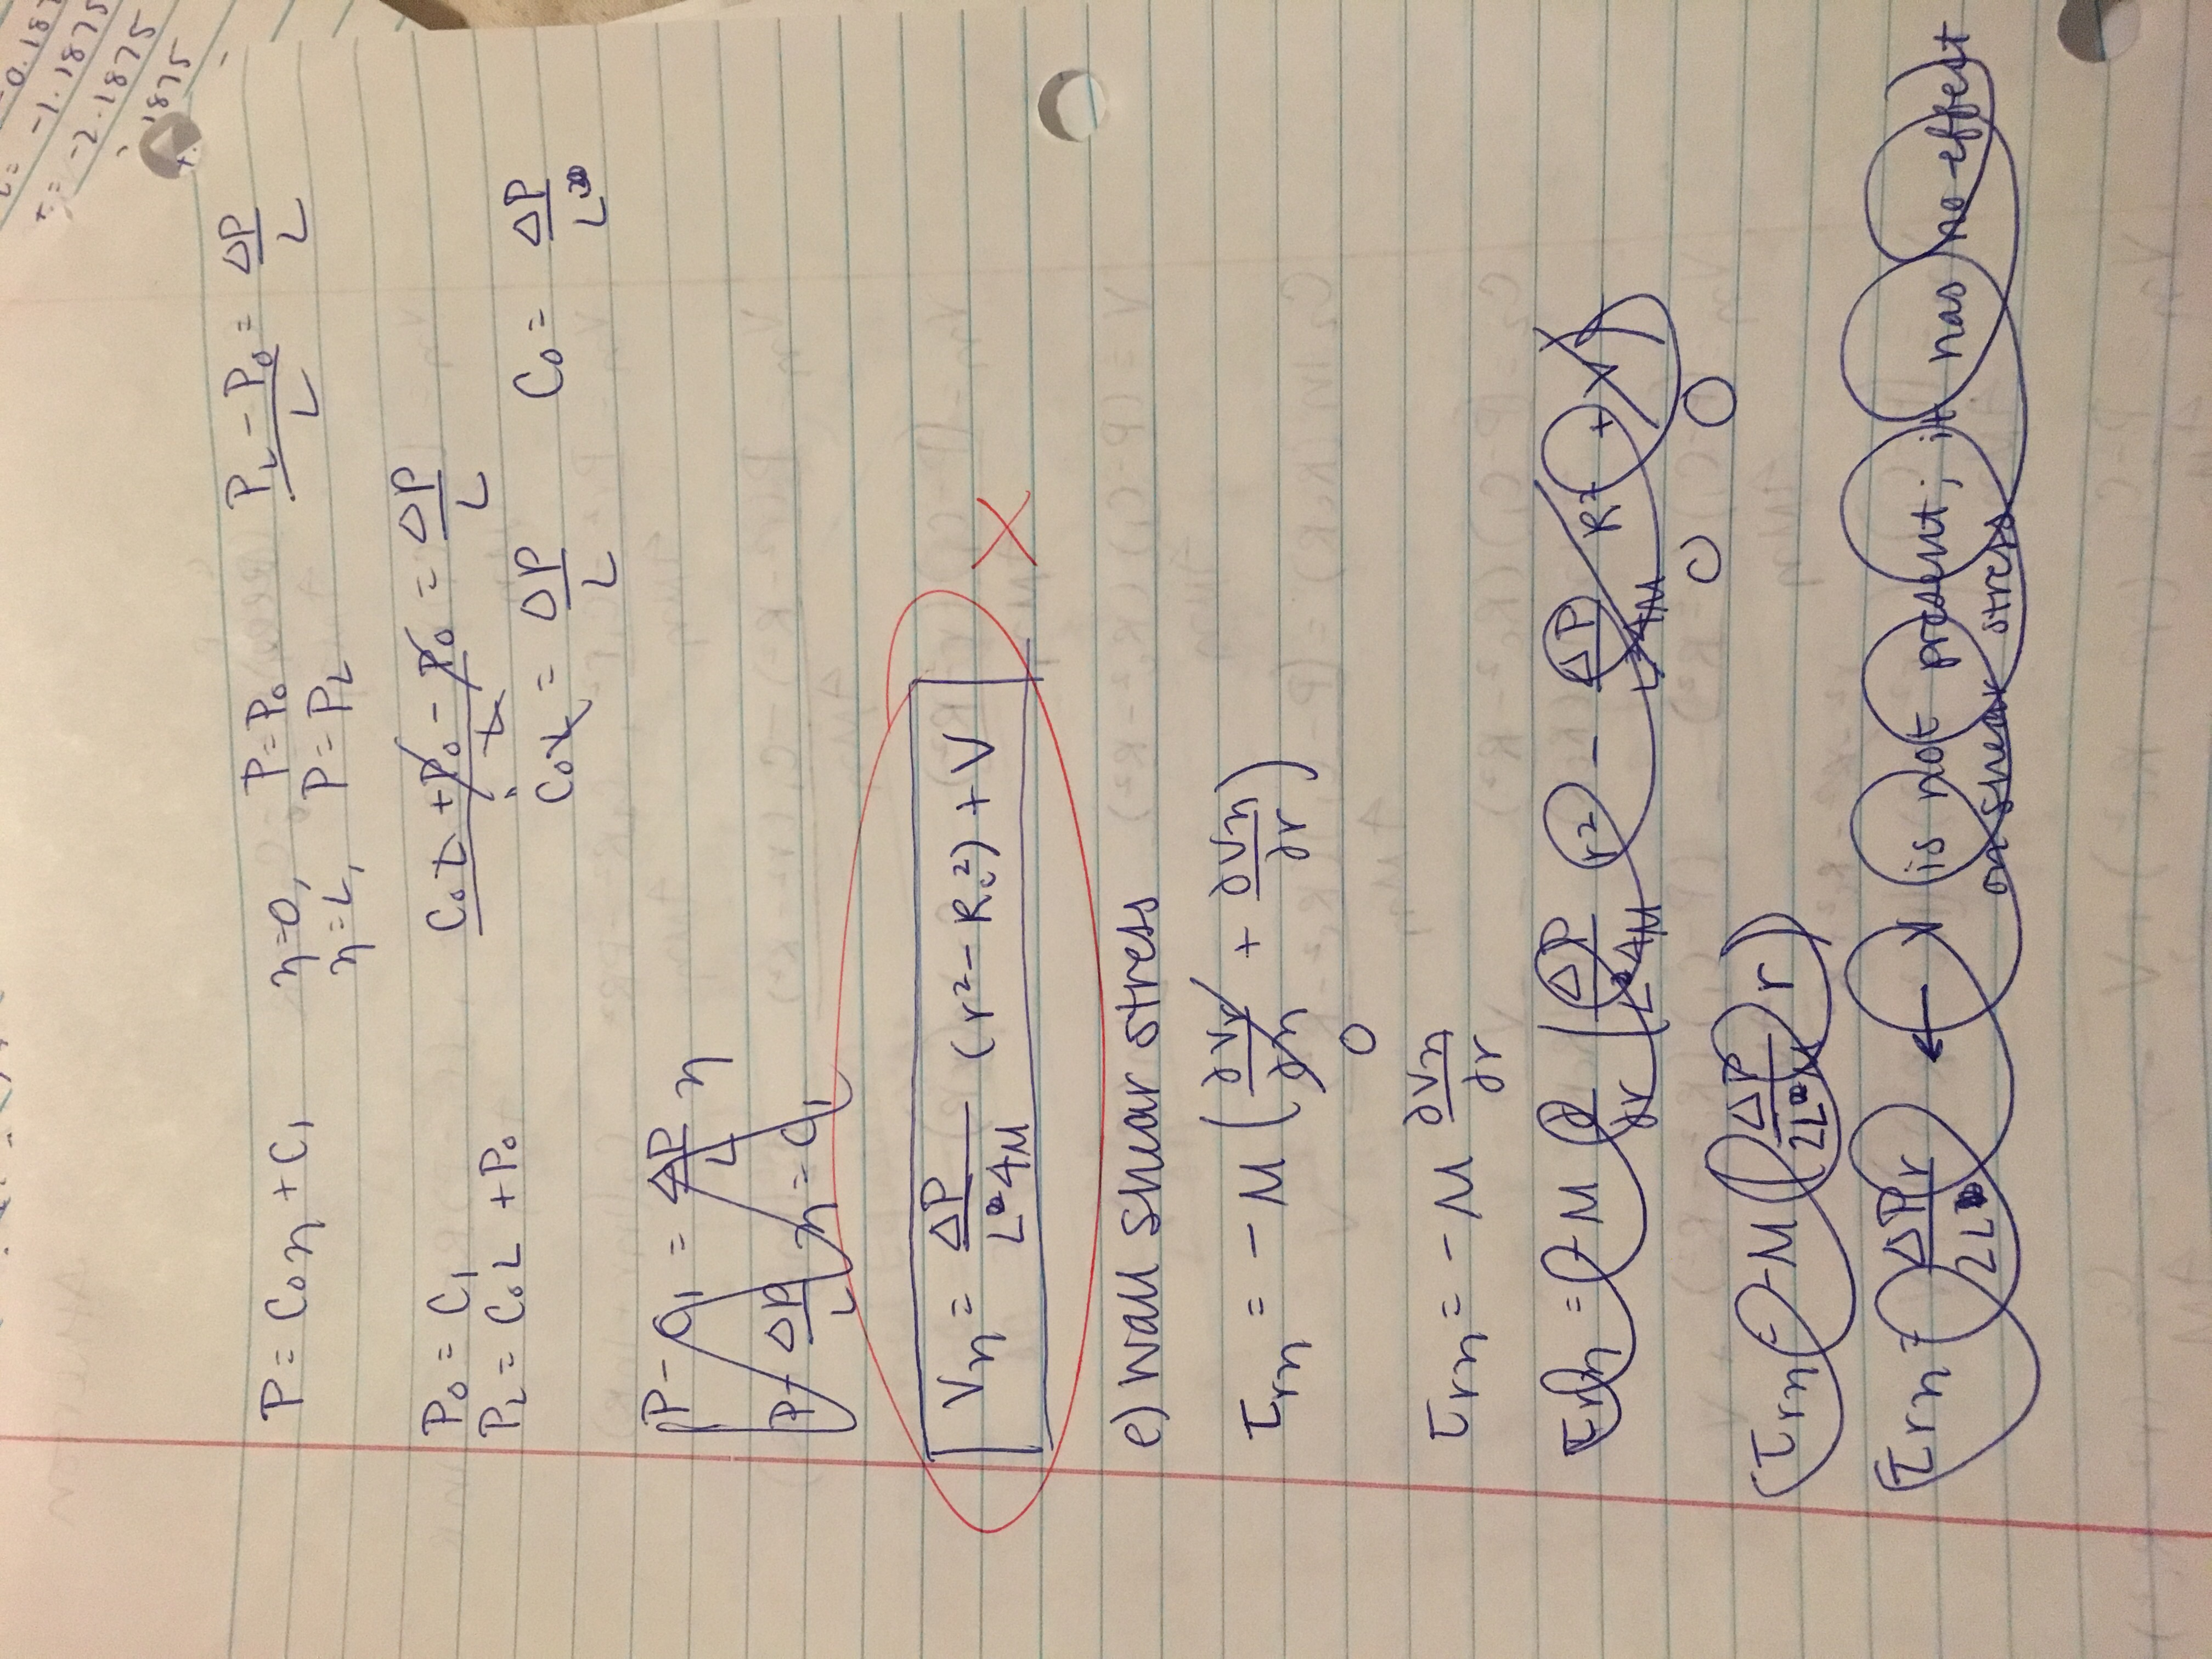 -0.187
= -1.1875
= -2.1875
1875
P = C₀η + C₁    η=0,    P=P₀    (P_L - P₀)/L = ΔP/L
η=L,    P=P_L
P₀ = C₁    (C₀L + P₀ - P₀)/L = ΔP/L
P_L = C₀L + P₀
C₀L = ΔP/L    C₀ = ΔP/L
P - C₁ = ΔP/L η
P - ΔP/L η = C₁
Vη = ΔP/(L4μ) (r² - R_c²) + V    X
e) wall shear stress
τrη = -μ (∂Vr/∂η + ∂Vη/∂r)
0
τrη = -μ ∂Vη/∂r
τrη = -μ ∂/∂r (ΔP/(L4μ) r² - ΔP/(L4μ) R² + V)
0    0
τrη = -μ (ΔP/(2Lμ) r)
τrη = ΔPr/2L ← V is not present; it has no effect
on shear stress